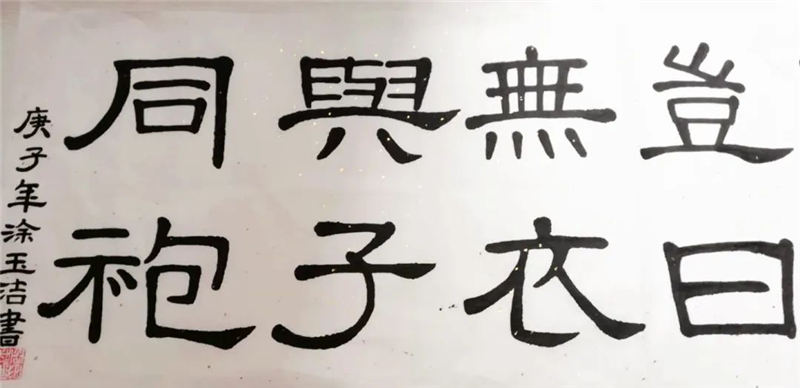 豈曰
無衣
與子
同袍
庚子年涂玉洁書